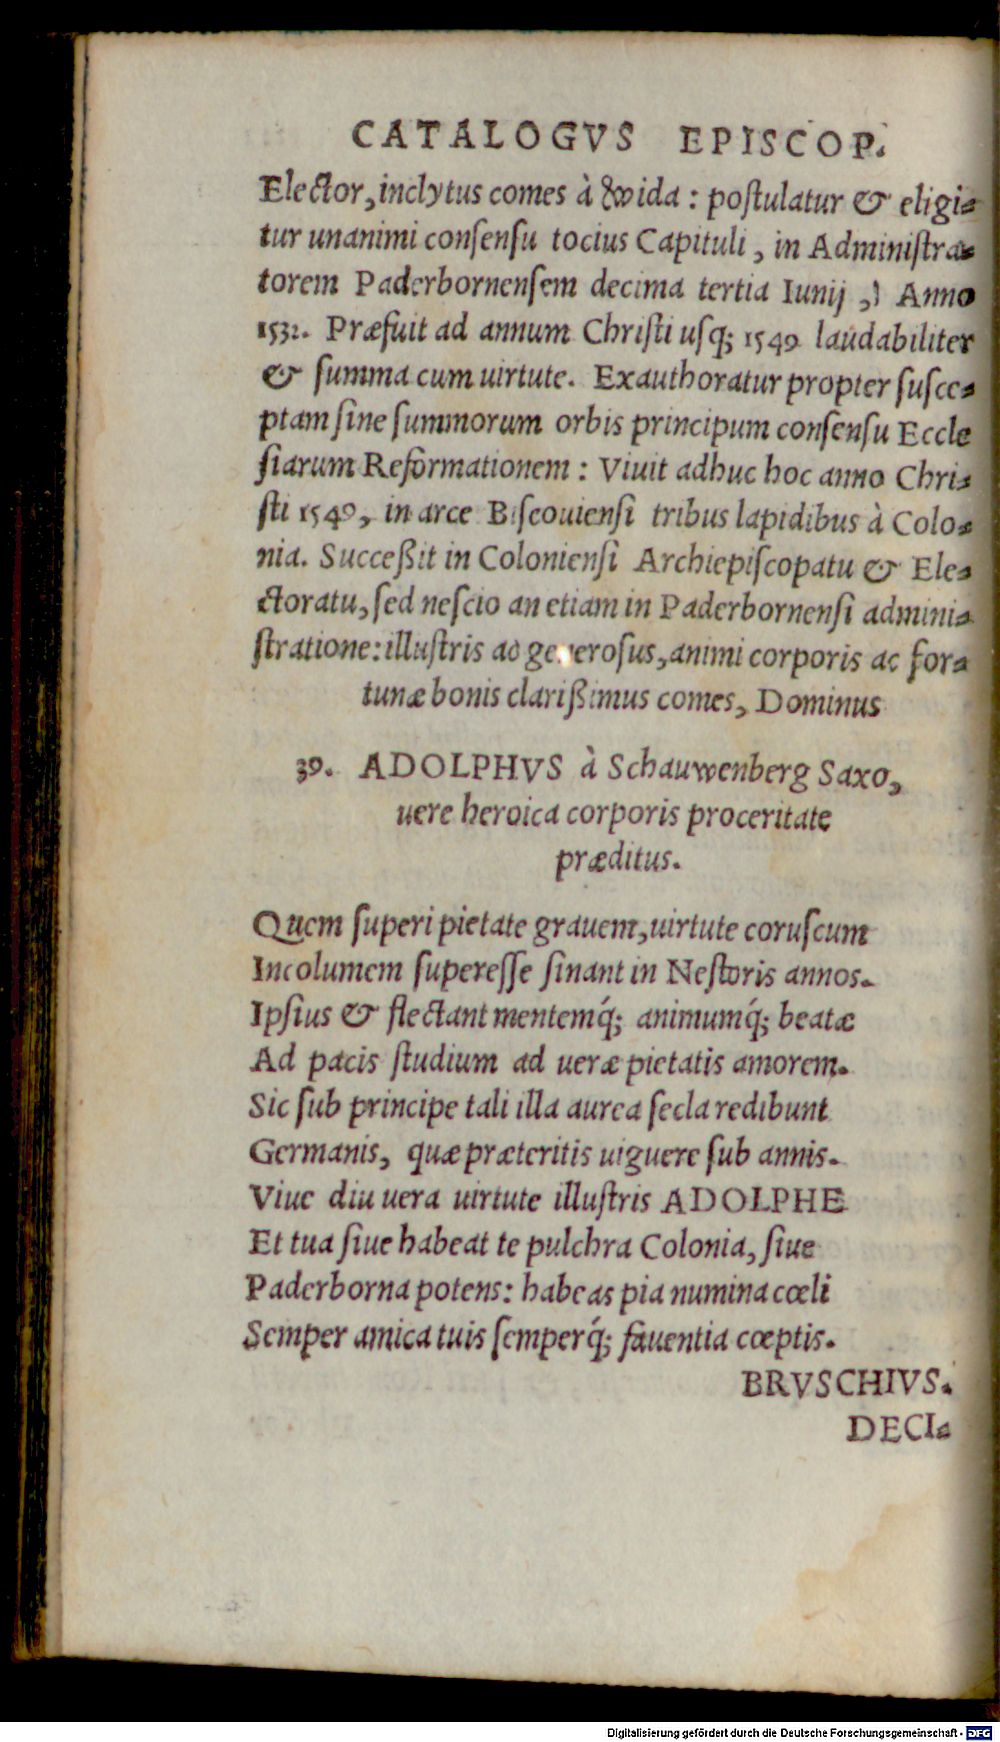 CATALOGVS EPISCOP.
Elector, inclytus comes à Wida : poſtulatur & eligi-
tur unanimi conſenſu tocius Capituli, in Adminiſtra-
torem Paderbornenſem decima tertia Iunij , Anno
1532. Præfuit ad annum Chriſti uſq; 1549 laudabiliter
& ſumma cum uirtute. Exauthoratur propter ſuſce-
ptam ſine ſummorum orbis principum conſenſu Eccle
ſiarum Reformationem : Viuit adhuc hoc anno Chri-
ſti 1549, in arce Biſcouienſi tribus lapidibus à Colo-
nia. Succeßit in Colonienſi Archiepiſcopatu & Ele-
ctoratu, ſed neſcio an etiam in Paderbornenſi admini-
ſtratione: illuſtris ac generoſus, animi corporis ac for-
tunæ bonis clarißimus comes, Dominus
39. ADOLPHVS à Schauwenberg Saxo,
uere heroica corporis proceritate
præditus.
Quem ſuperi pietate grauem, uirtute coruſcum
Incolumem ſupereſſe ſinant in Neſtoris annos.
Ipſius & flectant mentemq́; animumq́; beatæ
Ad pacis ſtudium ad ueræ pietatis amorem.
Sic ſub principe tali illa aurea ſecla redibunt
Germanis, quæ præteritis uiguere ſub annis.
Viue diu uera uirtute illuſtris ADOLPHE
Et tua ſiue habeat te pulchra Colonia, ſiue
Paderborna potens: habeas pia numina cœli
Semper amica tuis ſemperq́; fauentia cœptis.
BRVSCHIVS.
DECI-
Digitalisierung gefördert durch die Deutsche Forschungsgemeinschaft - DFG